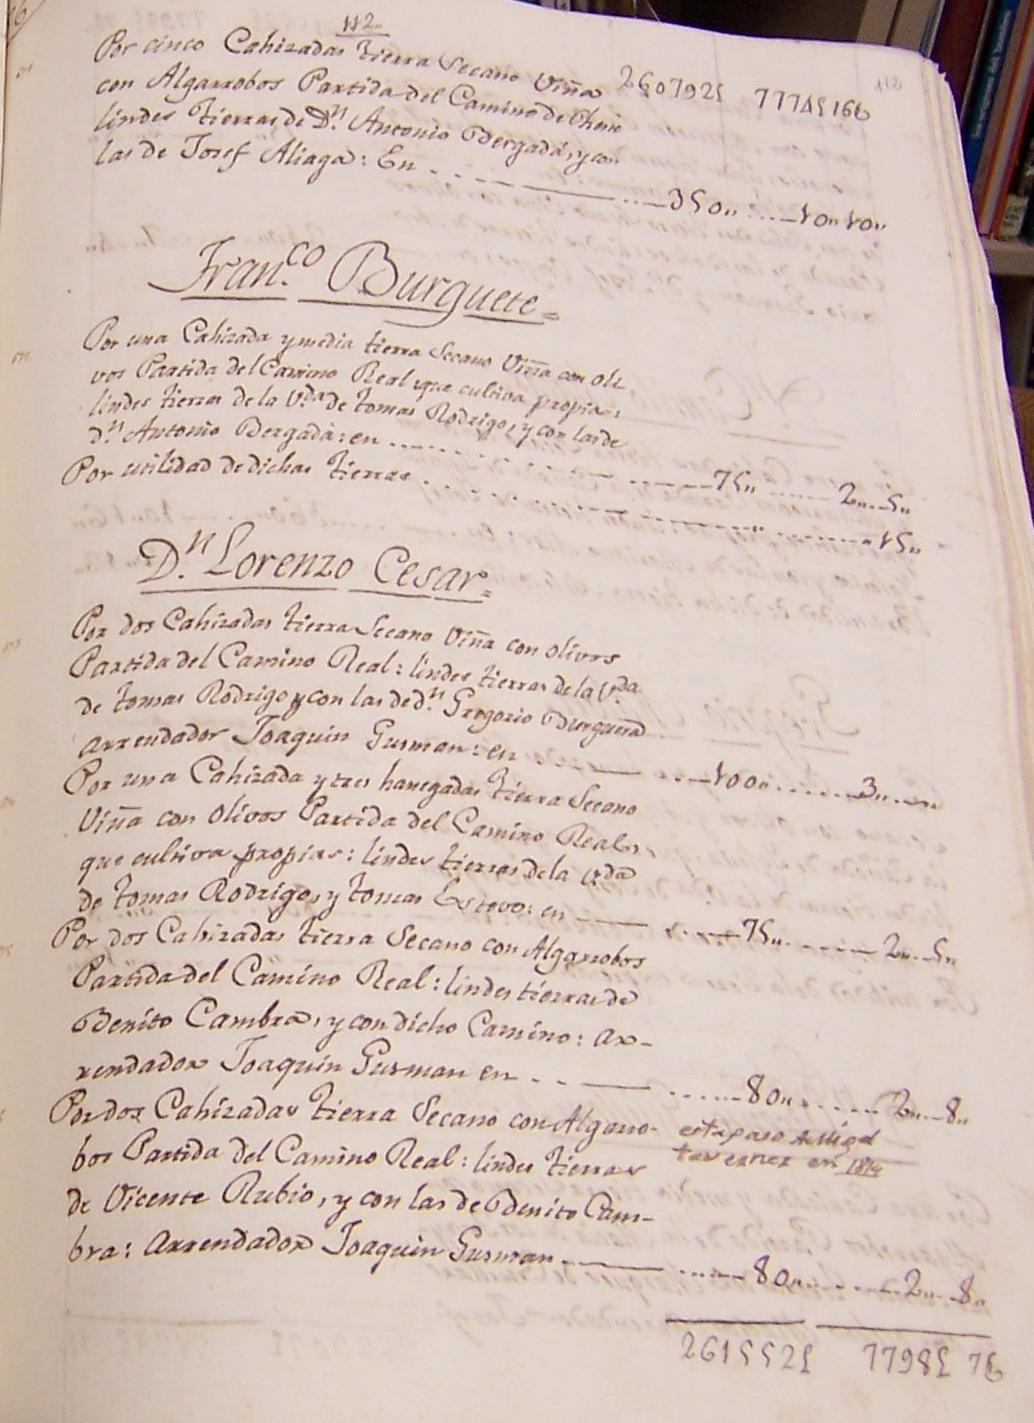 112
112
Por cinco Cahizadas tierra Secano Viña 260792£ 7774£16
con Algarrobos Partida del Camino de Cheste
lindes tierras de Dn. Antonio Bergadá, y con
las de Josef Aliaga: En 350 10 10
Franco. Burguete
Por una Cahizada y media tierra Secano Viña con oli
vos Partida del Camino Real que cultiva propias:
lindes tierras de la Vda. de tomas Rodrigo, y con las de
dn. Antonio Bergadá: en 75 2 5
Por utilidad de dichas tierras 15
Dn. Lorenzo Cesar
Por dos Cahizadas tierra Secano Viña con olivos
Partida del Camino Real: lindes tierras de la Vda.
de tomas Rodrigo y con las de dn. Gregorio
Arrendador Joaquin Gusman: en 100 3
Por una Cahizada y tres hanegadas tierra Secano
Viña con olivos Partida del Camino Real
que cultiva propias: lindes tierras de la Vda
de tomas Rodrigo, y tomas Estevo: en 75 2 5
Por dos Cahizadas tierra Secano con Algarrobos
Partida del Camino Real: lindes tierras de
Benito Cambra, y con dicho Camino: ar-
rendador Joaquin Gusman en 80 2 8
Por dos Cahizadas tierra Secano con Algarro-
bos Partida del Camino Real: lindes tierras
de Vicente Rubio, y con las de Benito Cam-
bra: Arrendador Joaquin Gusman 80 2 8
esta paso a Migel
taverner en 1814
261552£ 7798£ 76